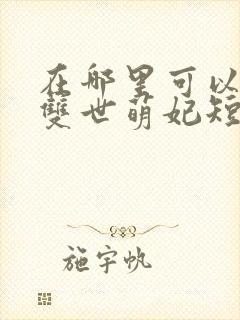 在哪里可以
雙世萌妃短
施宇帆